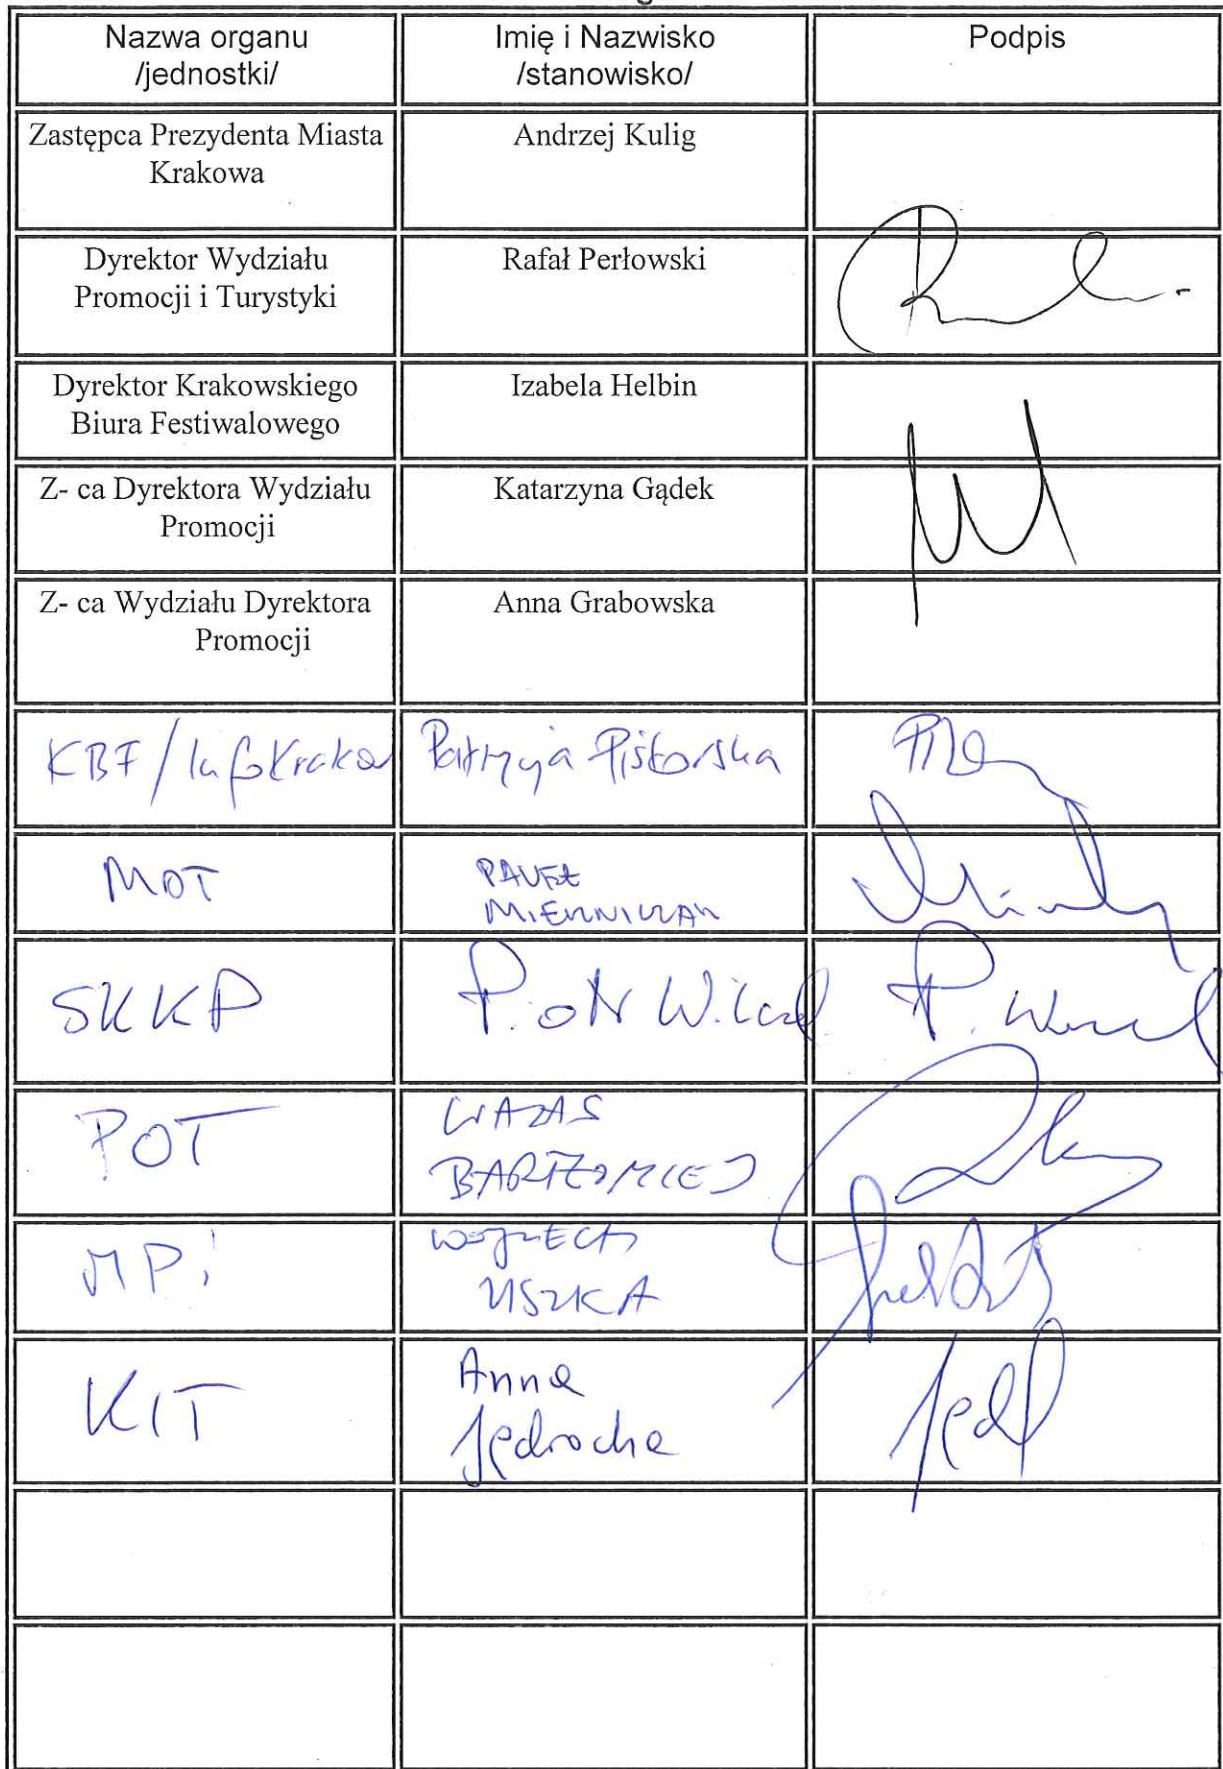 Nazwa organu
/jednostki/
Imię i Nazwisko
/stanowisko/
Podpis
Zastępca Prezydenta Miasta
Krakowa
Andrzej Kulig
Dyrektor Wydziału
Promocji i Turystyki
Rafał Perłowski
Dyrektor Krakowskiego
Biura Festiwalowego
Izabela Helbin
Z- ca Dyrektora Wydziału
Promocji
Katarzyna Gądek
Z- ca Wydziału Dyrektora
Promocji
Anna Grabowska
KBF/InfoKraków
Patrycja Pistorska
MOT
PAWEŁ
MIERNICZAK
SKKP
Piotr Wilczek
POT
WALAS
BARTŁOMIEJ
MPi
WOJCIECH
USZKA
KIT
Anna
Jędrocha